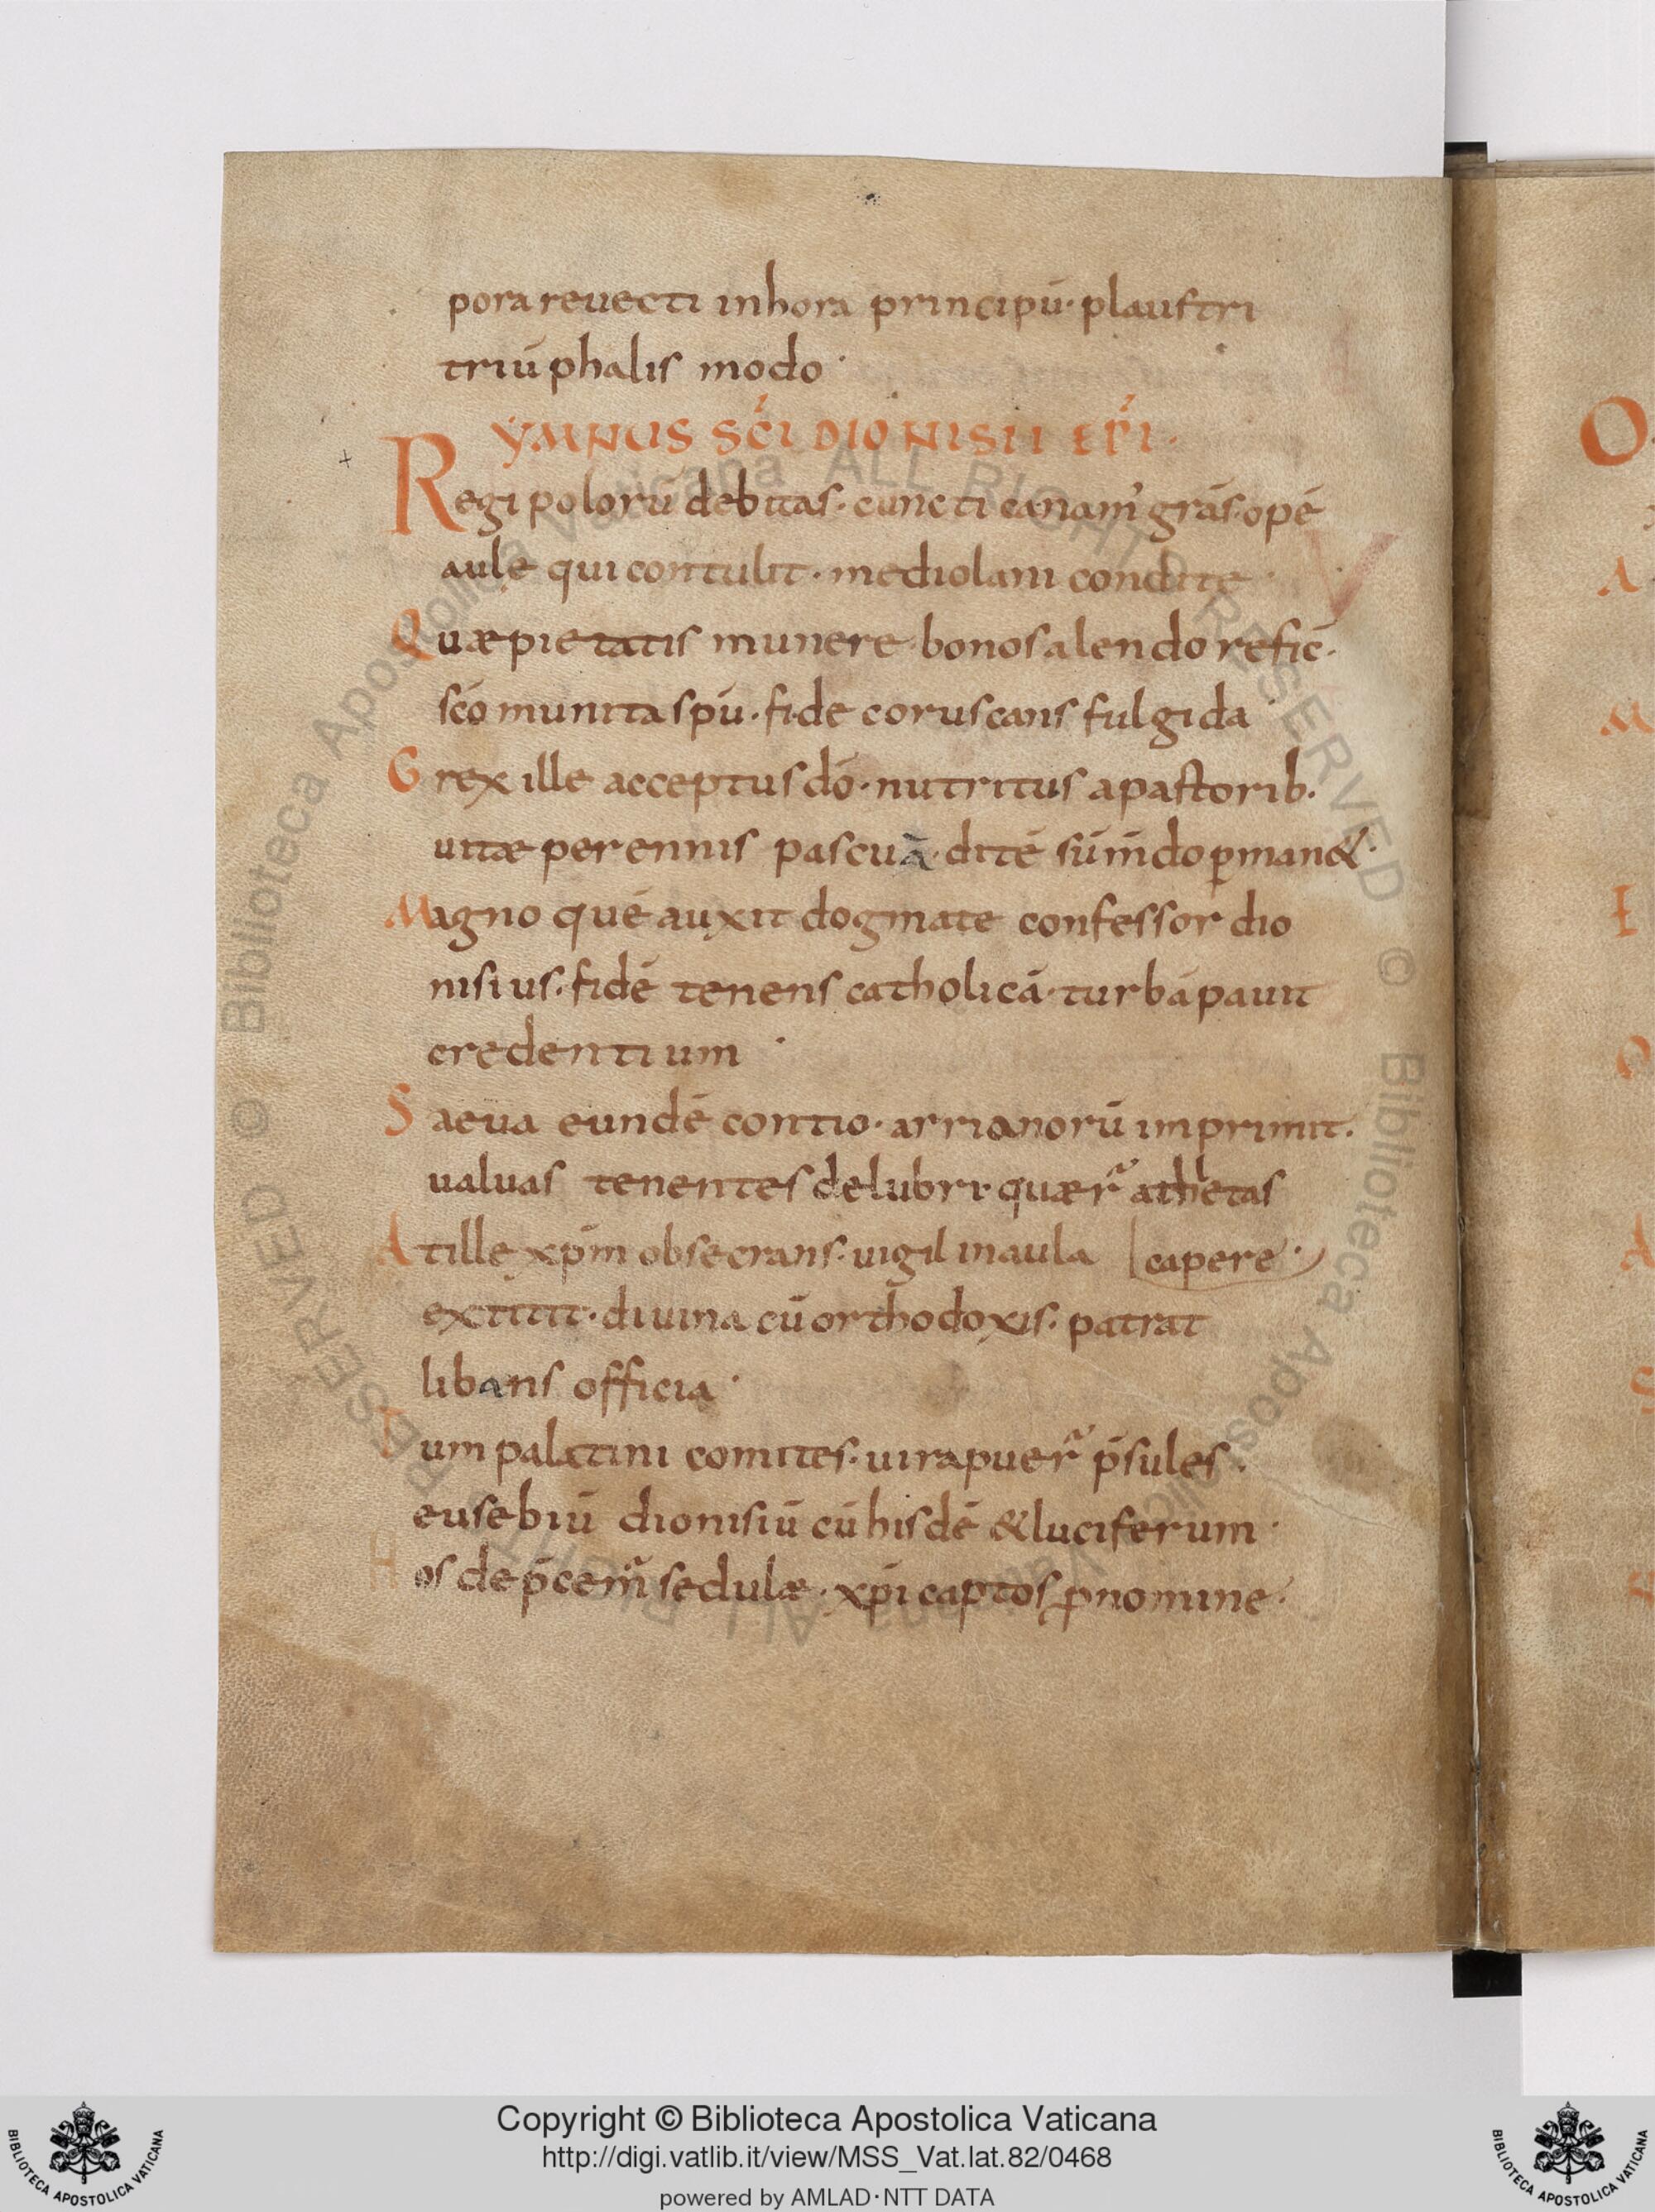 pora reuecti in hora principū· plaustri
triūphalis modo·
YMNUS SC̄I DIONISII EP̄I·
Regi poloru debitas· cuncti canam' grās· opē
aulę qui contulit· mediolani condite
Quæ pietatis munere bonos alendo refic̄·
sc̄o munita sp̄u· fide coruscans fulgida
Grex ille acceptus dō· nutritus a pastorib·
uitæ perennis pascuā· ditē sūm̄do p̱man&·
Magno quē auxit dogmate confessor dio
nisius· fidē tenens catholicā· turbā pauit
credentium·
Saeua eundē contio· arrianorū imprimit·
ualuas tenentes delubri· quær̄ athletas
At ille xp̄m obsecrans· uigil in aula capere·
extitit· diuina cū orthodoxis· patrat
libans officia·
Dum palatini comites· ui rapuer̄ p̄sules·
eusebiū dionisiū cū hisdē & luciferum·
Hos dep̄cem̄ sedulæ· xp̄i captos p̱ nomine·
O
A
M
E
O
A
S
Copyright © Biblioteca Apostolica Vaticana
http://digi.vatlib.it/view/MSS_Vat.lat.82/0468
powered by AMLAD·NTT DATA
BIBLIOTECA APOSTOLICA VATICANA
BIBLIOTECA APOSTOLICA VATICANA
© Biblioteca Apostolica Vaticana ALL RIGHTS RESERVED © Biblioteca Apostolica Vaticana ALL RIGHTS RESERVED